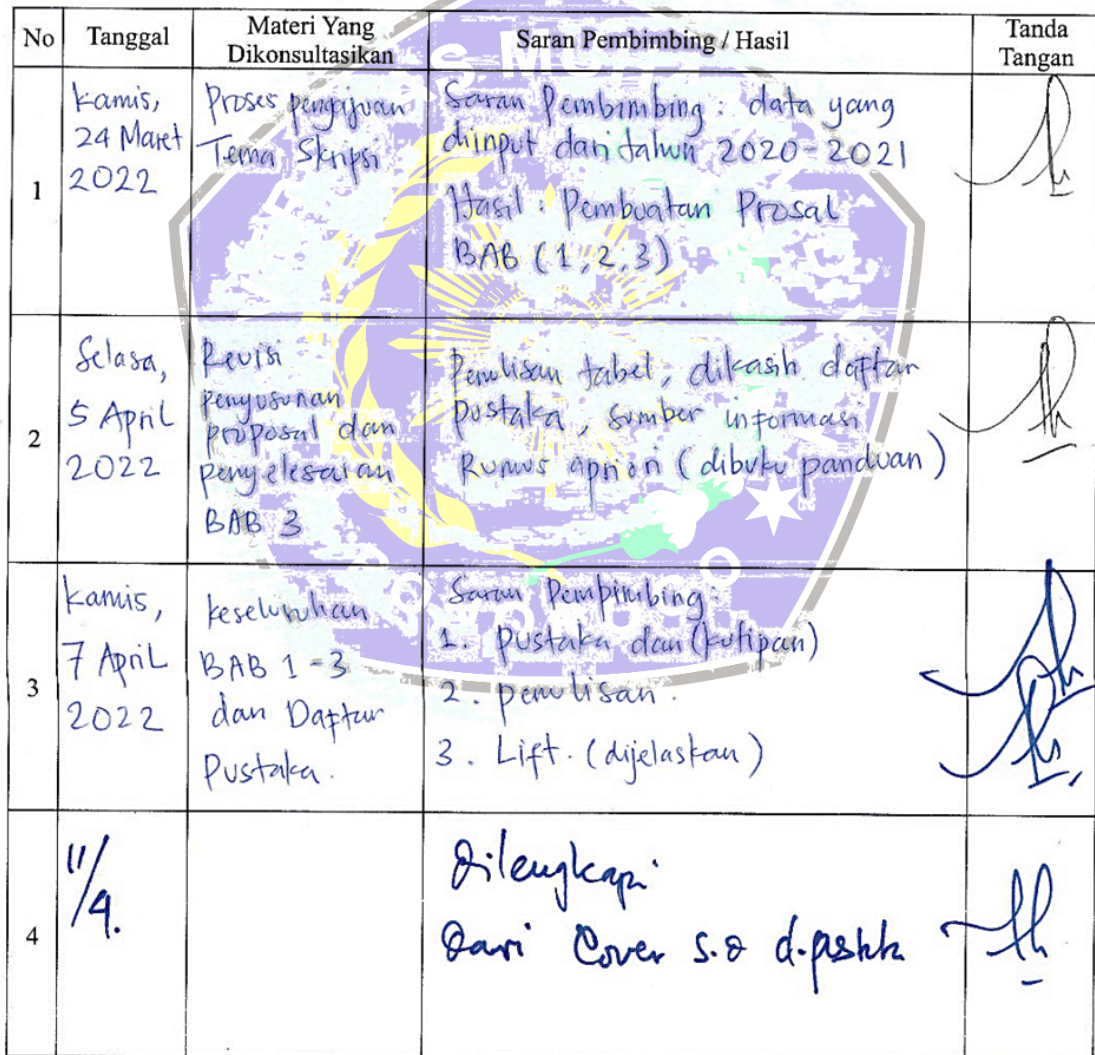 No
Tanggal
Materi Yang
Dikonsultasikan
Saran Pembimbing / Hasil
Tanda
Tangan
1
Kamis,
24 Maret
2022
Proses pengajuan
Tema Skripsi
Saran Pembimbing : data yang
diinput dari tahun 2020-2021
Hasil : Pembuatan Prosal
BAB (1,2,3)
2
Selasa,
5 April
2022
Revisi
penyusunan
proposal dan
penyelesaian
BAB 3
Penulisan tabel, dikasih daftar
pustaka, sumber informasi
Rumus apriori (dibuku panduan)
3
Kamis,
7 April
2022
keseluruhan
BAB 1-3
dan Daftar
Pustaka.
Saran Pempimbing:
1. pustaka dan (kutipan)
2. penulisan.
3. Lift. (dijelaskan)
4
11/4.
Dilengkapi
Dari Cover s.d